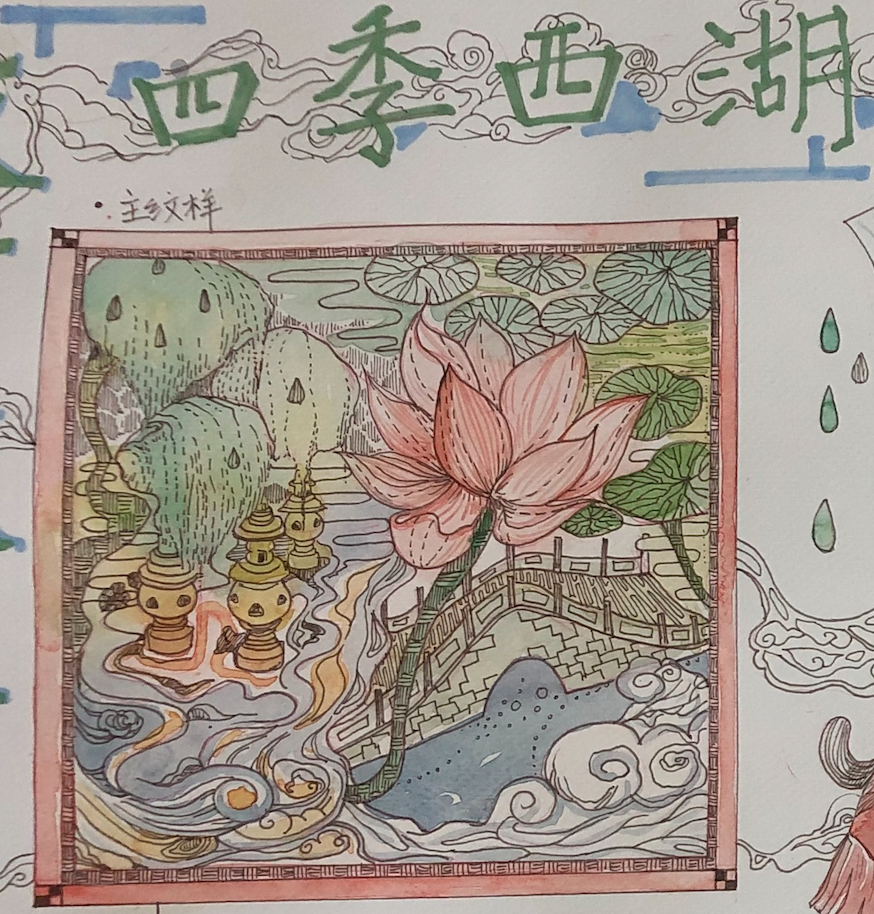 四季西湖
•主纹样